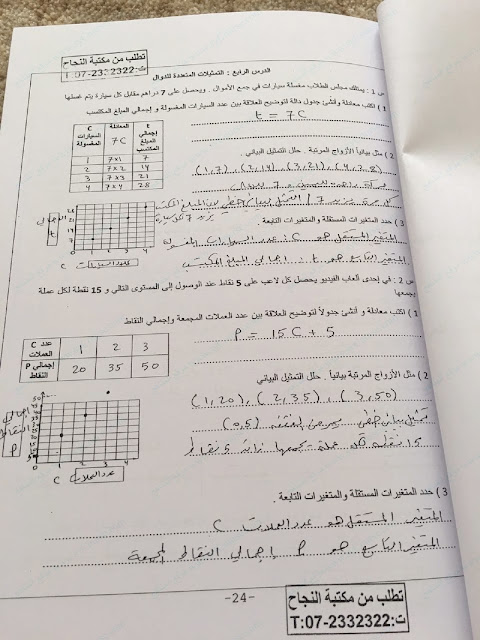 تطلب من مكتبة النجاح
ت:2332322-07:T
الدرس الرابع : التمثيلات المتعددة للدوال
س 1 : يمتلك مجلس الطلاب مغسلة سيارات في جمع الأموال . ويحصل على 7 دراهم مقابل كل سيارة يتم غسلها
1 ) اكتب معادلة وأنشئ جدول دالة لتوضيح العلاقة بين عدد السيارات المغسولة و إجمالي المبلغ المكتسب
t = 7C
C السيارات المغسولة | المعادلة 7C | t إجمالي المبلغ المكتسب
1 | 7x1 | 7
2 | 7x2 | 14
3 | 7x3 | 21
4 | 7x4 | 28
2 ) مثل بيانياً الأزواج المرتبة . حلل التمثيل البياني
(1,7), (2,14), (3,21), (4,28)
3 ) حدد المتغيرات المستقلة والمتغيرات التابعة .
المتغير المستقل هو C : عدد السيارات المغسولة
المتغير التابع هو t : إجمالي المبلغ المكتسب
الإجمالي t
28
21
14
7
0 1 2 3 4
عدد السيارات C
س 2 : في إحدى ألعاب الفيديو يحصل كل لاعب على 5 نقاط عند الوصول إلى المستوى التالي و 15 نقطة لكل عملة
وجمعها
1 ) اكتب معادلة و أنشئ جدولاً لتوضيح العلاقة بين عدد العملات المجمعة وإجمالي النقاط
P = 15C + 5
عدد C العملات | 1 | 2 | 3
إجمالي P النقاط | 20 | 35 | 50
2 ) مثل الأزواج المرتبة بيانياً . حلل التمثيل البياني
(1,20), (2,35), (3,50)
تمثيل بياني خطي يمر من النقطة (0,5)
15 نقطة كل عملة يجمعها زائد 5 نقاط
إجمالي النقاط P
عدد العملات C
3 ) حدد المتغيرات المستقلة والمتغيرات التابعة .
المتغير المستقل هو عدد العملات C
المتغير التابع هو P إجمالي النقاط المجمعة
-24-
تطلب من مكتبة النجاح
ت:2332322-07:T